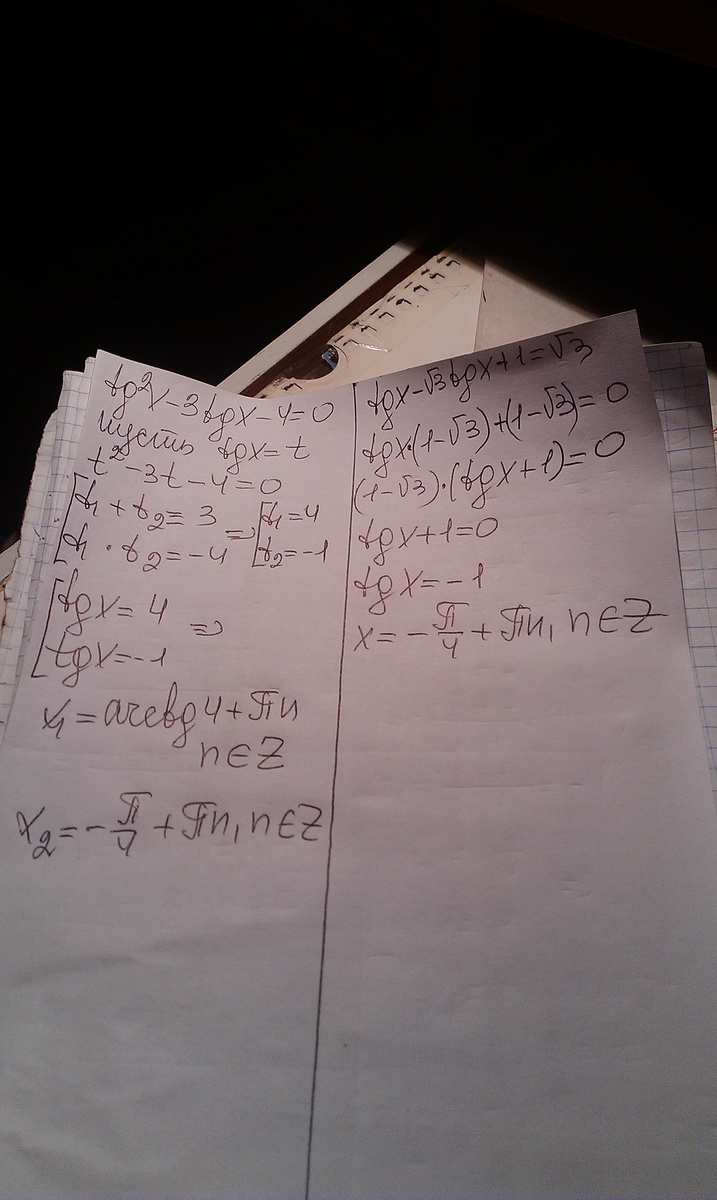 tg²x-3tgx-4=0
пусть tgx=t
t²-3t-4=0
[t₁+t₂=3 => [t₁=4
[t₁·t₂=-4 [t₂=-1
[tgx=4 =>
[tgx=-1
x₁=arctg4+πn
n∈Z
x₂=-π/4+πn, n∈Z
tgx-√3tgx+1=√3
tgx·(1-√3)+(1-√3)=0
(1-√3)·(tgx+1)=0
tgx+1=0
tgx=-1
x=-π/4+πn, n∈Z